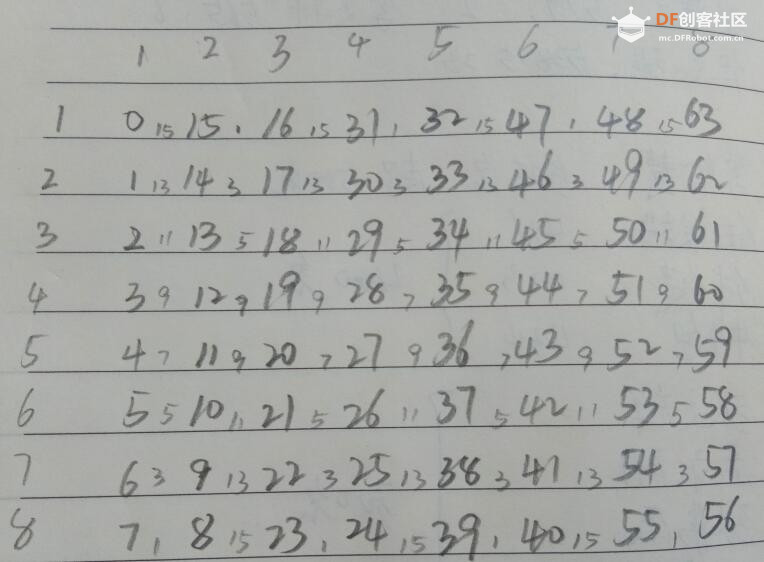 DF创客社区
mc.DFRobot.com.cn
1 2 3 4 5 6 7 8
1 0 15 15 1 16 15 31 1 32 15 47 1 48 15 63
2 1 13 14 3 17 13 30 3 33 13 46 3 49 13 62
3 2 11 13 5 18 11 29 5 34 11 45 5 50 11 61
4 3 9 12 7 19 9 28 7 35 9 44 7 51 9 60
5 4 7 11 9 20 7 27 9 36 7 43 9 52 7 59
6 5 5 10 11 21 5 26 11 37 5 42 11 53 5 58
7 6 3 9 13 22 3 25 13 38 3 41 13 54 3 57
8 7 1 8 15 23 1 24 15 39 1 40 15 55 1 56